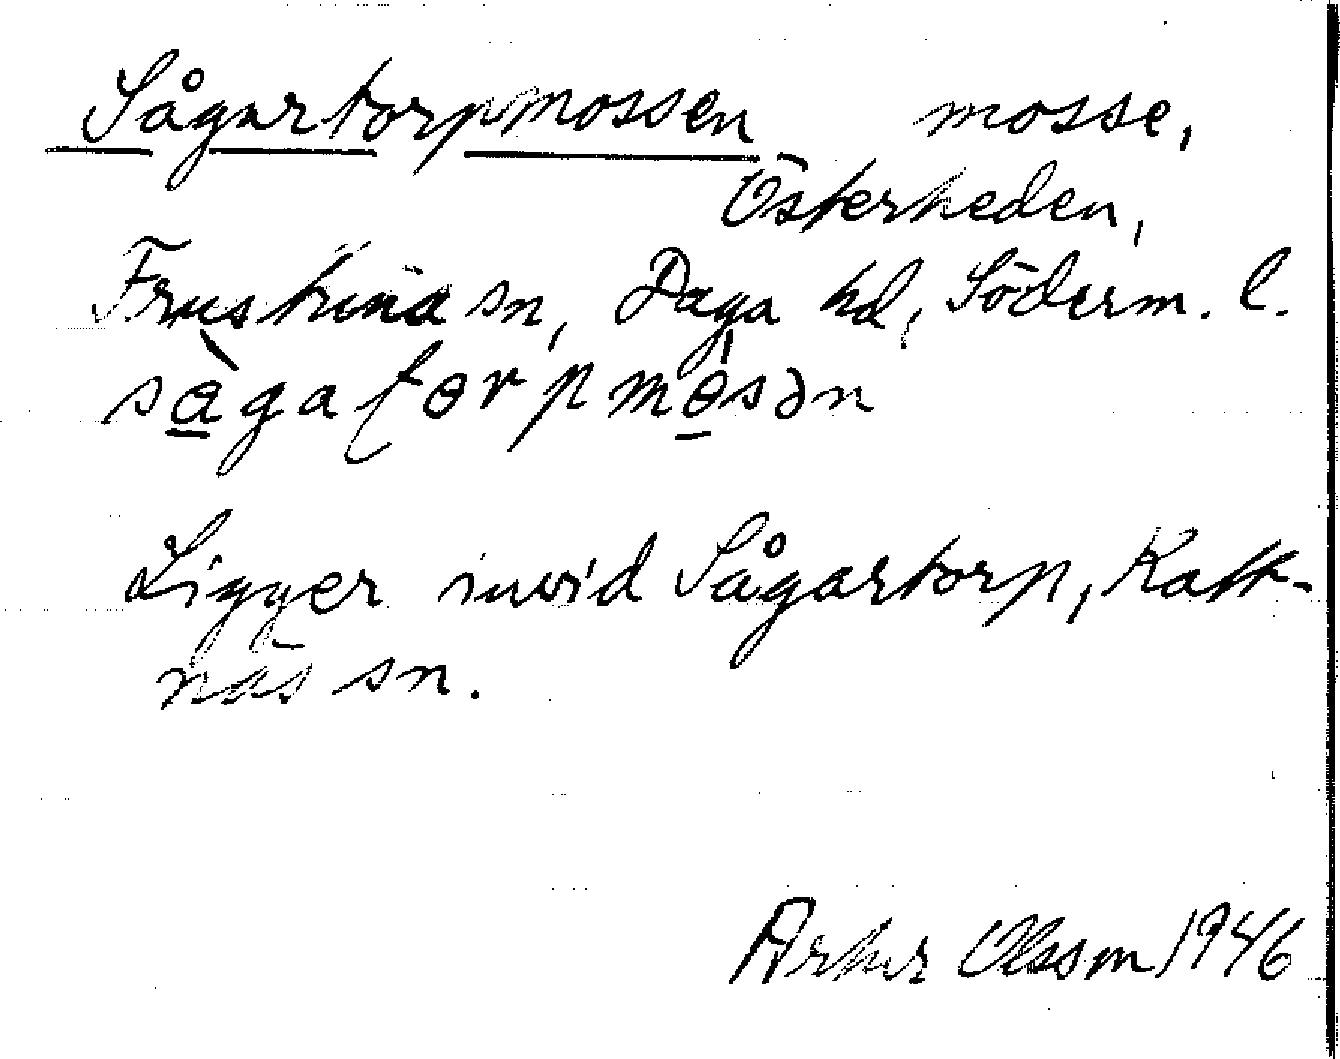 Sågartorpmossen mosse,
Österheden,
Frustuna sn, Daga hd, Söderm. l.
Ligger invid Sågartorp, Katt-
näs sn.
Artur Olsson 1946